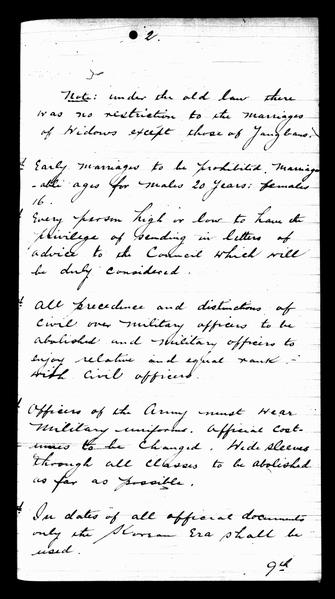 2.
Note: under the old law there
was no restriction to the marriages
of Widows except those of Yangbans.
Early marriages to be prohibited. Marriage
-able ages for males 20 years: females
16.
Every person high or low to have the
privilege of sending in letters of
advice to the Council which will
be duly considered.
All precedence and distinctions of
Civil over Military officers to be
abolished and Military officers to
enjoy relative and equal rank -
with Civil officers.
Officers of the Army must wear
Military uniforms. Official cost-
umes to be changed. Wide sleeves
through all classes to be abolished
as far as possible.
In dates of all official documents
only the Korean Era shall be
used.
9th